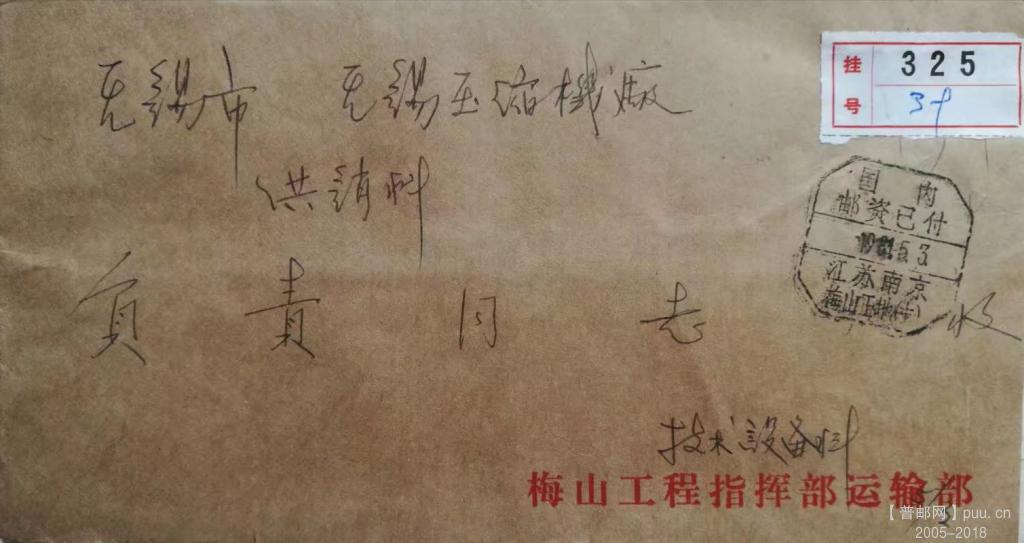 无锡市 无锡压缩機厰
供销科
负责同志 收
挂号 325
国内
邮资已付
江苏南京
梅山工地(付)
技术設备科
梅山工程指挥部运输部
【普邮网】puu.cn
2005-2018